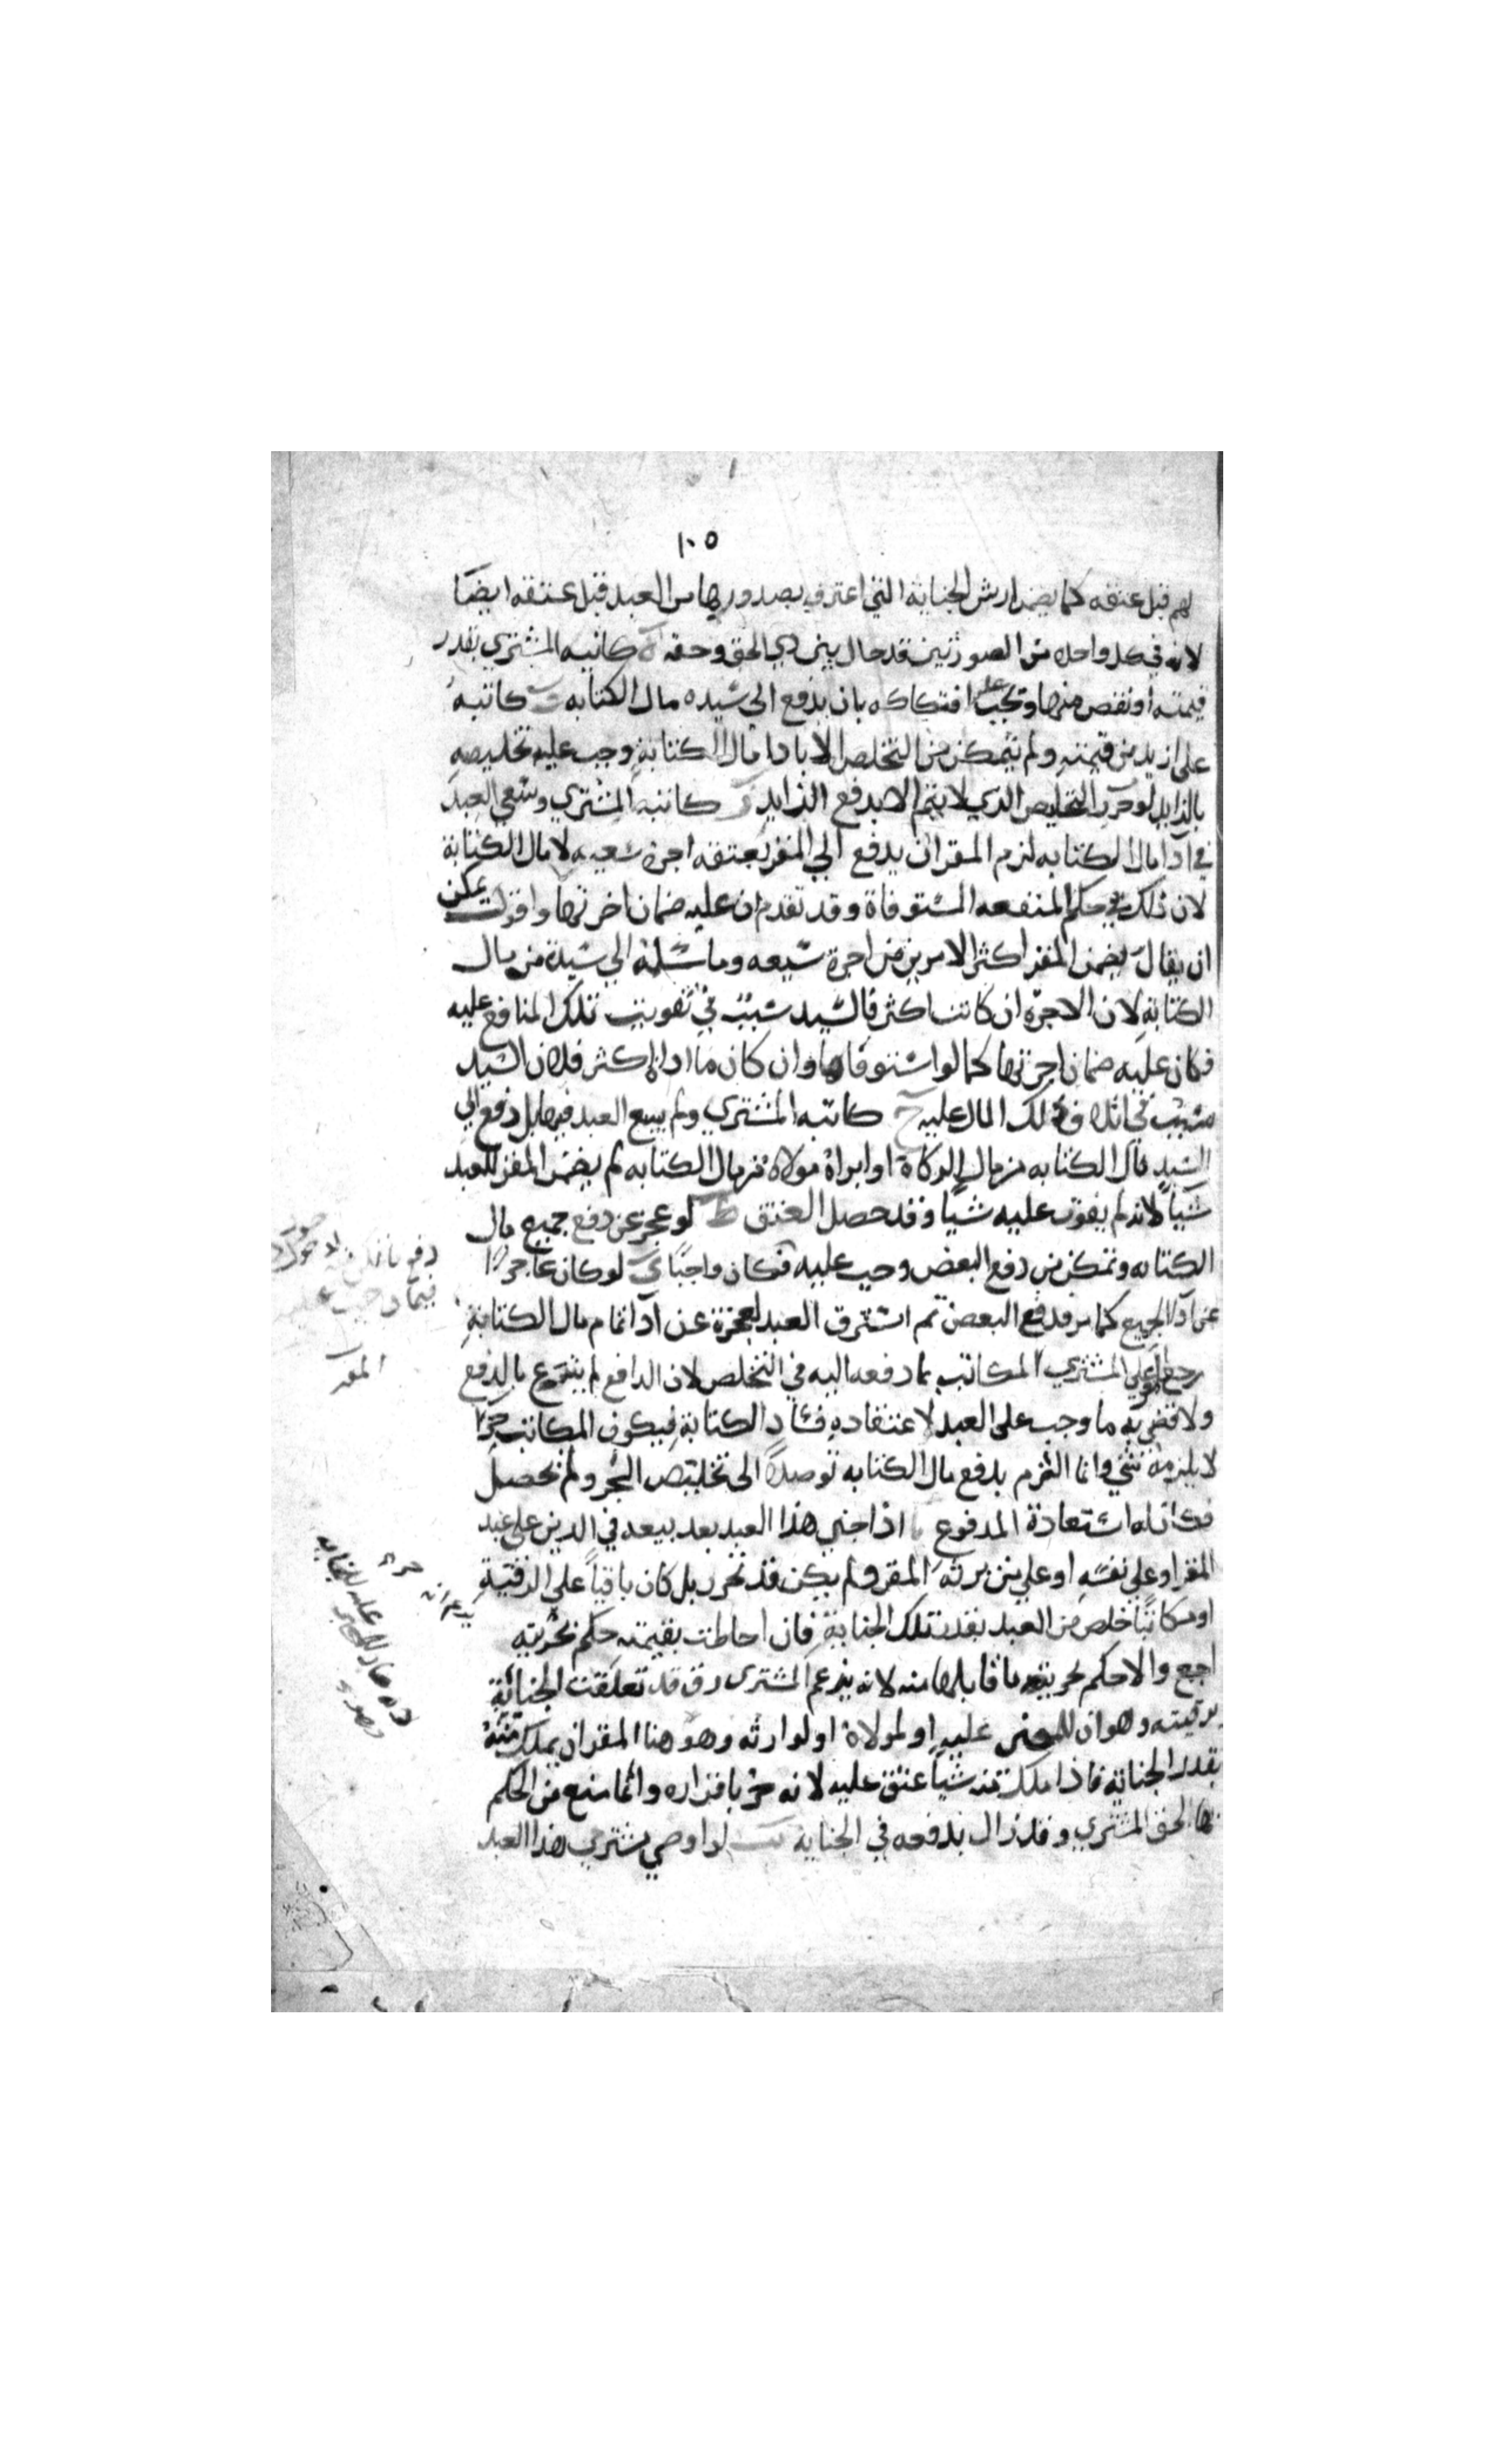 ١٠٥
لهم قبل عتقه كما يضمن ارش الجناية التي اعترف بصدورها من العبد قبل عتقه ايضا
لانه في كل واحد من الصورتين قد حال بين ذي الحق وحقه كاتبه المشتري بقدر
قيمته او نقص منها وتجب عليه افتكاكه بان يدفع الى سيده مال الكتابه كاتبه
على ازيد من قيمته ولم يتمكن من التخلص الا بادا مال الكتابة وجب عليه تخليصه
بالزايد التخليص الذي لا يتم الا بدفع الزايد كاتبه المشتري وسعي العبد
في ادا مال الكتابه لزم المقر ان يدفع الى المقر بعتقه اجرة سعيه لا مال الكتابة
لان ذلك في حكم المنفعه المستوفاة وقد تقدم ان عليه ضمان اجرتها واقول يمكن
ان يقال يضمن المقر اكثر الامرين من اجرة سعيه وما سلمه الي سيده من مال
الكتابة لان الاجرة ان كانت اكثر فالسيد سبب في تفويت تلك المنافع عليه
فكان عليه ضمان اجرتها كما لو استوفاها وان كان ما اداه اكثر فلان السيد
سبب في اتلاف ذلك المال عليه ح كاتبه المشتري ولم يسع العبد فيها بل دفع الي
السيد مال الكتابه من مال الزكاة او ابراه مولاه من مال الكتابه لم يضمن المقر للعبد
شيا لانه لم يفوت عليه شيا وقد حصل العتق ط لو عجز عن دفع جميع مال
الكتابه وتمكن من دفع البعض وجب عليه فكان واجبا ي لو كان عاجزا
عن ادا الجميع كما مر فدفع البعض ثم استرق العبد لعجزه عن ادا تمام مال الكتابة
رجع على المشتري المكاتب بما دفعه اليه في التخلص لان الدافع لم يتبرع بالدفع
ولا قضي به ما وجب على العبد لاعتقاده فساد الكتابة فيكون المكاتب حرا
لا يلزمه شي وانما التزم بدفع مال الكتابه توصلا الى تخليص الحر ولم يحصل
فكان له استعادة المدفوع يا اذا جنى هذا العبد بعد بيعه في الدين على عبد
المقر او على نفسه او على من يرثه المقر ولم يكن قد تحرر بل كان باقيا على الرقية
او مكاتبا خلص من العبد بقدر تلك الجناية فان احاطت بقيمته حكم بحريته
اجمع والا حكم بحرية ما قابلها منه لانه بزعم المشتري رق قد تعلقت الجناية
برقبته وهو ان للمجنى عليه او لمولاه او لوارثه وهو هنا المقر ان يملك منه
بقدر الجناية فاذا ملك منه شيا عتق عليه لانه حر باقراره وانما منع من الحكم
بها لحق المشتري وقد زال بدفعه في الجناية يب لو اوصي مشتري هذا العبد
فيما وجب عليه
المقر